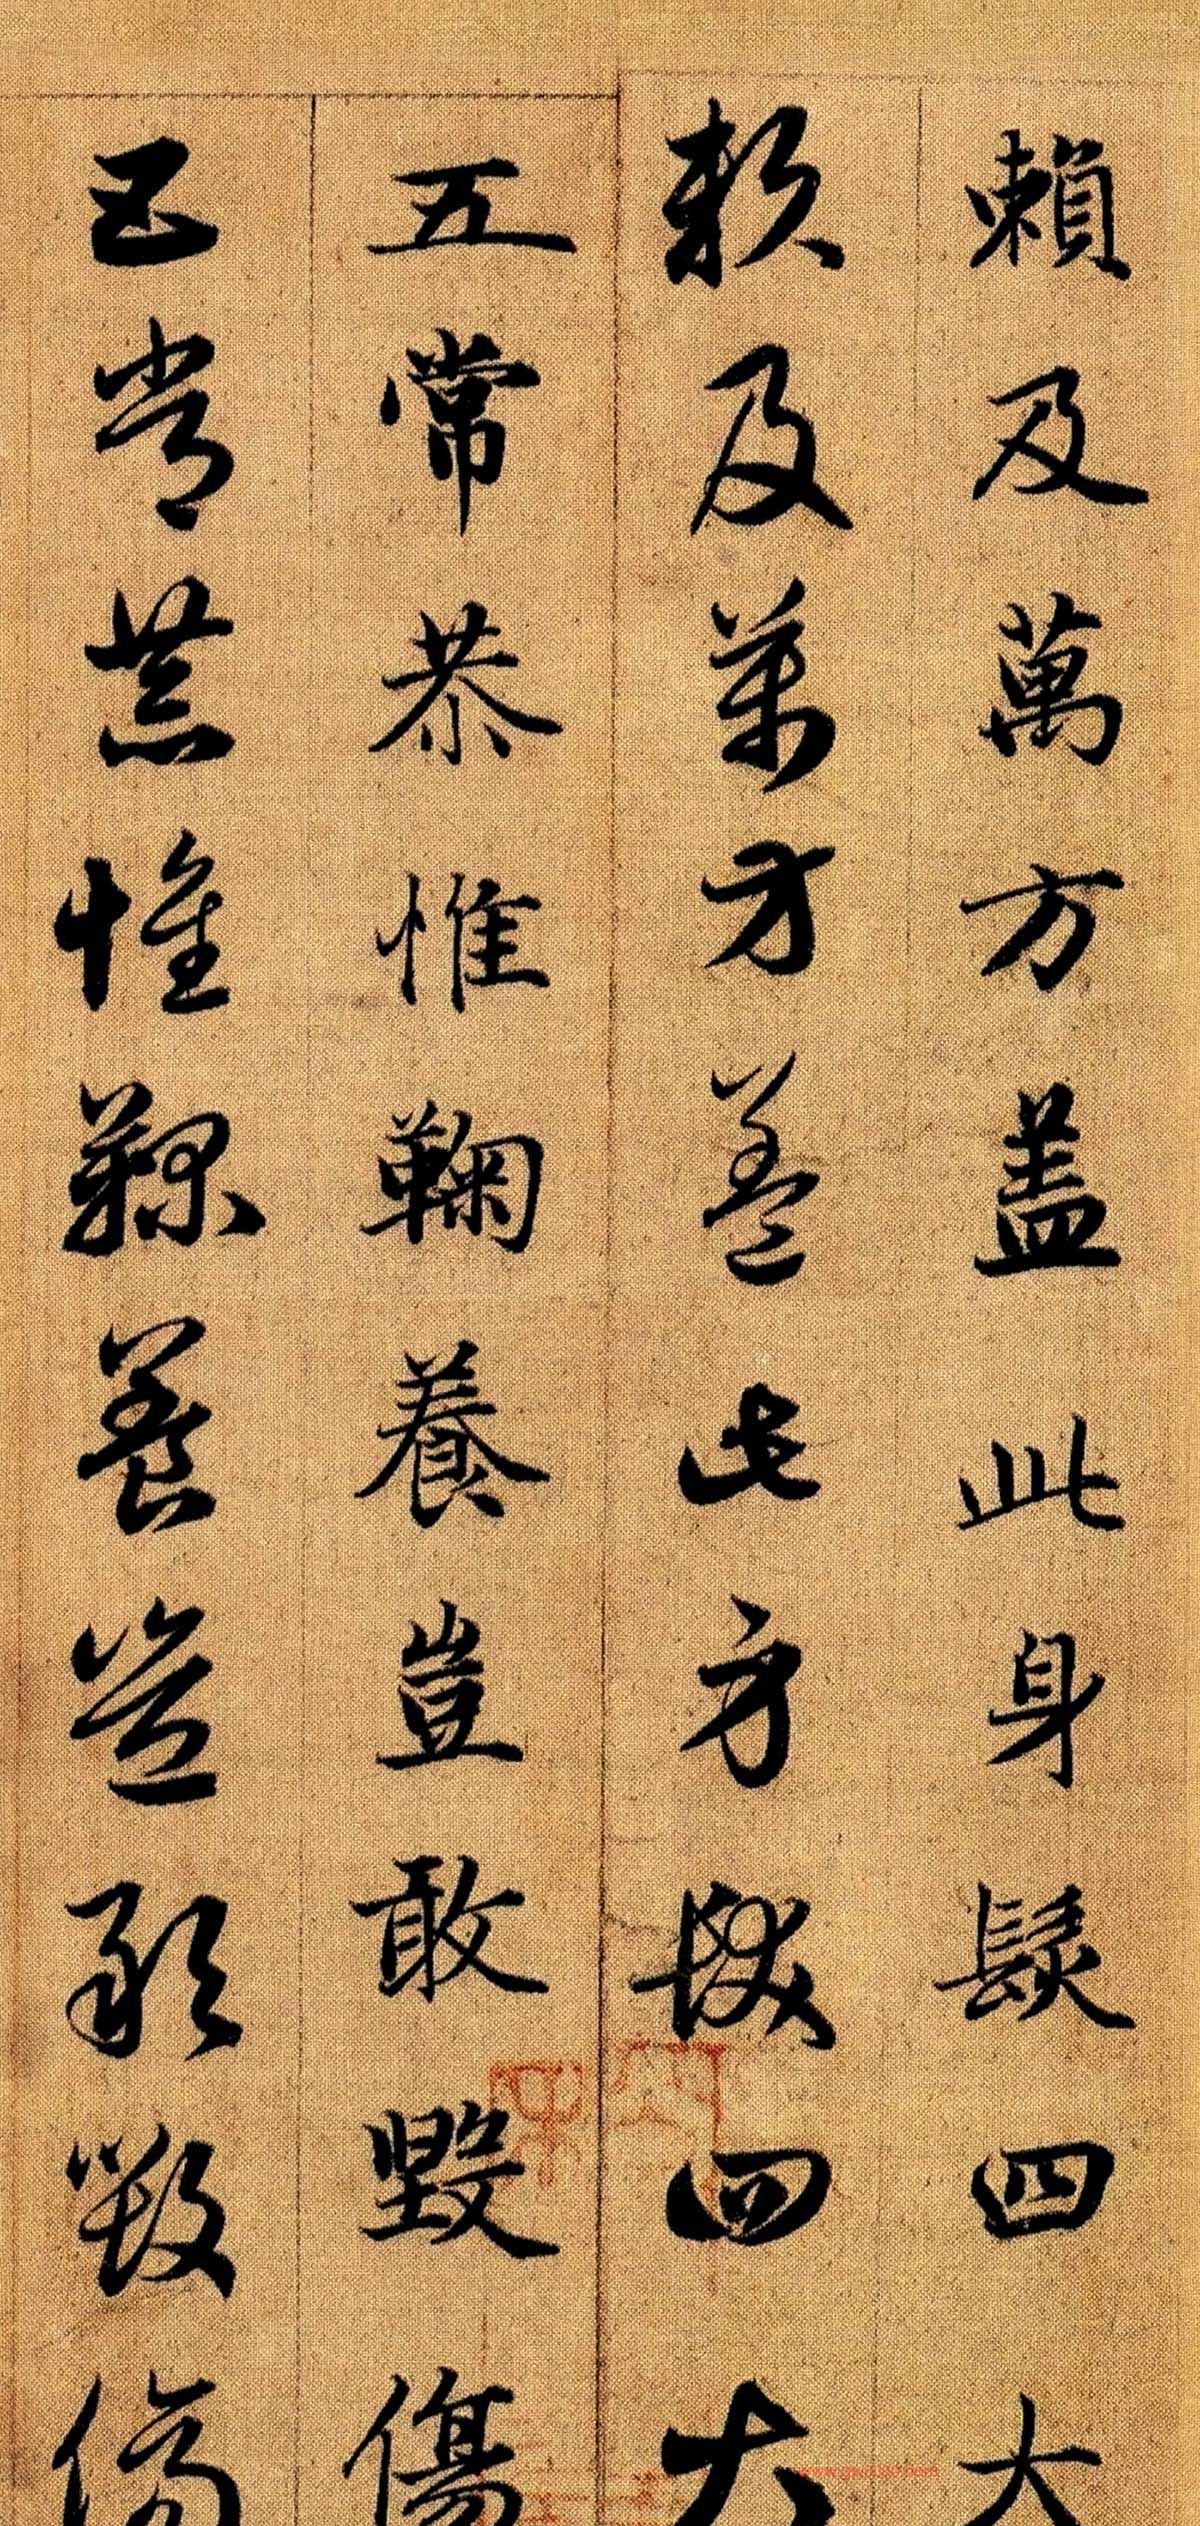 賴及萬方盖此身髮四大
賴及萬方盖此身髮四大
五常恭惟鞠養豈敢毀傷
五常恭惟鞠養豈敢毀傷
www.gw8000.com